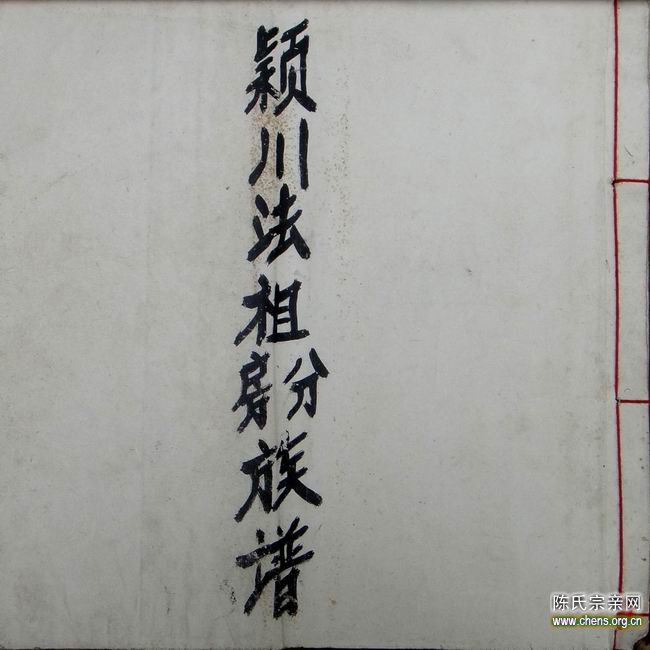 颖川法祖分房族谱
陈氏宗亲网
www.chens.org.cn